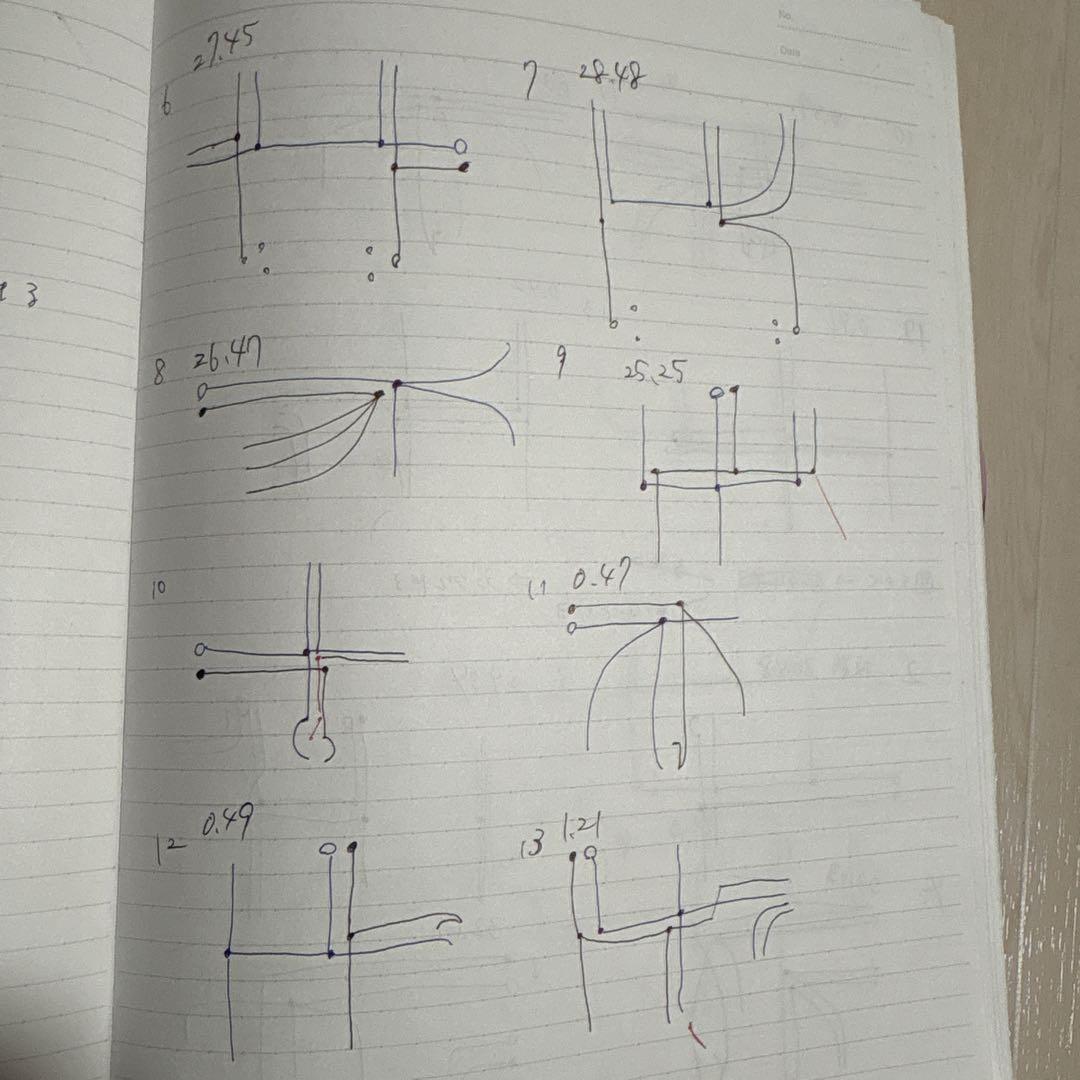 No.
Date
6 27.45
7 28.48
8 26.47
9 25.25
10
11 0.47
12 0.49
13 1.21